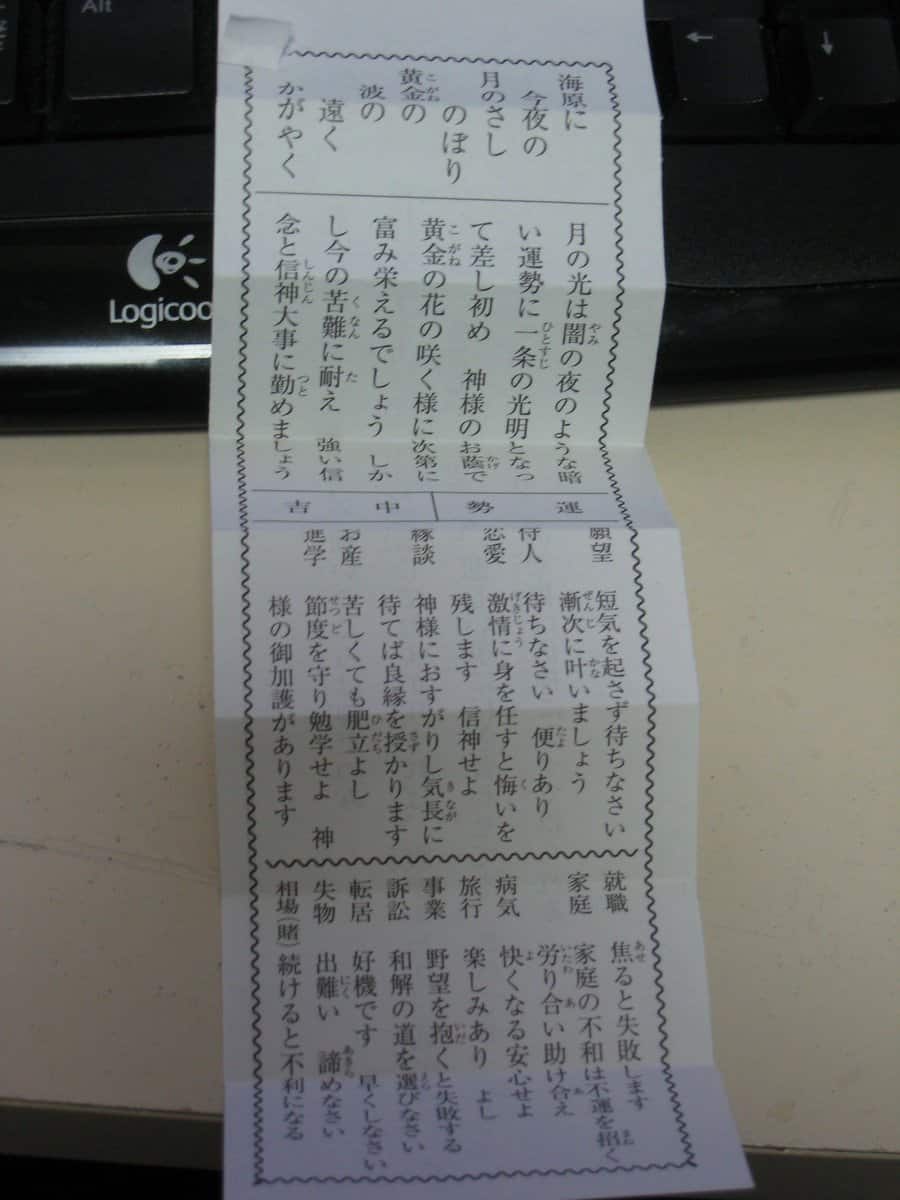 Alt
←
↓
Logicoo
海原に
今夜の
月のさし
のぼり
黄金の
波の
遠く
かがやく
月の光は闇の夜のような暗
い運勢に一条の光明となっ
て差し初め 神様のお蔭で
黄金の花の咲く様に次第に
富み栄えるでしょう しか
し今の苦難に耐え 強い信
念と信神大事に勤めましょう
運勢 中吉
願望 短気を起さず待ちなさい
漸次に叶いましょう
待人 待ちなさい 便りあり
恋愛 激情に身を任すと悔いを
残します 信神せよ
縁談 神様におすがりし気長に
待てば良縁を授かります
お産 苦しくても肥立よし
進学 節度を守り勉学せよ 神
様の御加護があります
就職 焦ると失敗します
家庭 家庭の不和は不運を招く
労り合い助け合え
病気 快くなる安心せよ
旅行 楽しみあり よし
事業 野望を抱くと失敗する
訴訟 和解の道を選びなさい
転居 好機です 早くしなさい
失物 出難い 諦めなさい
相場(賭) 続けると不利になる